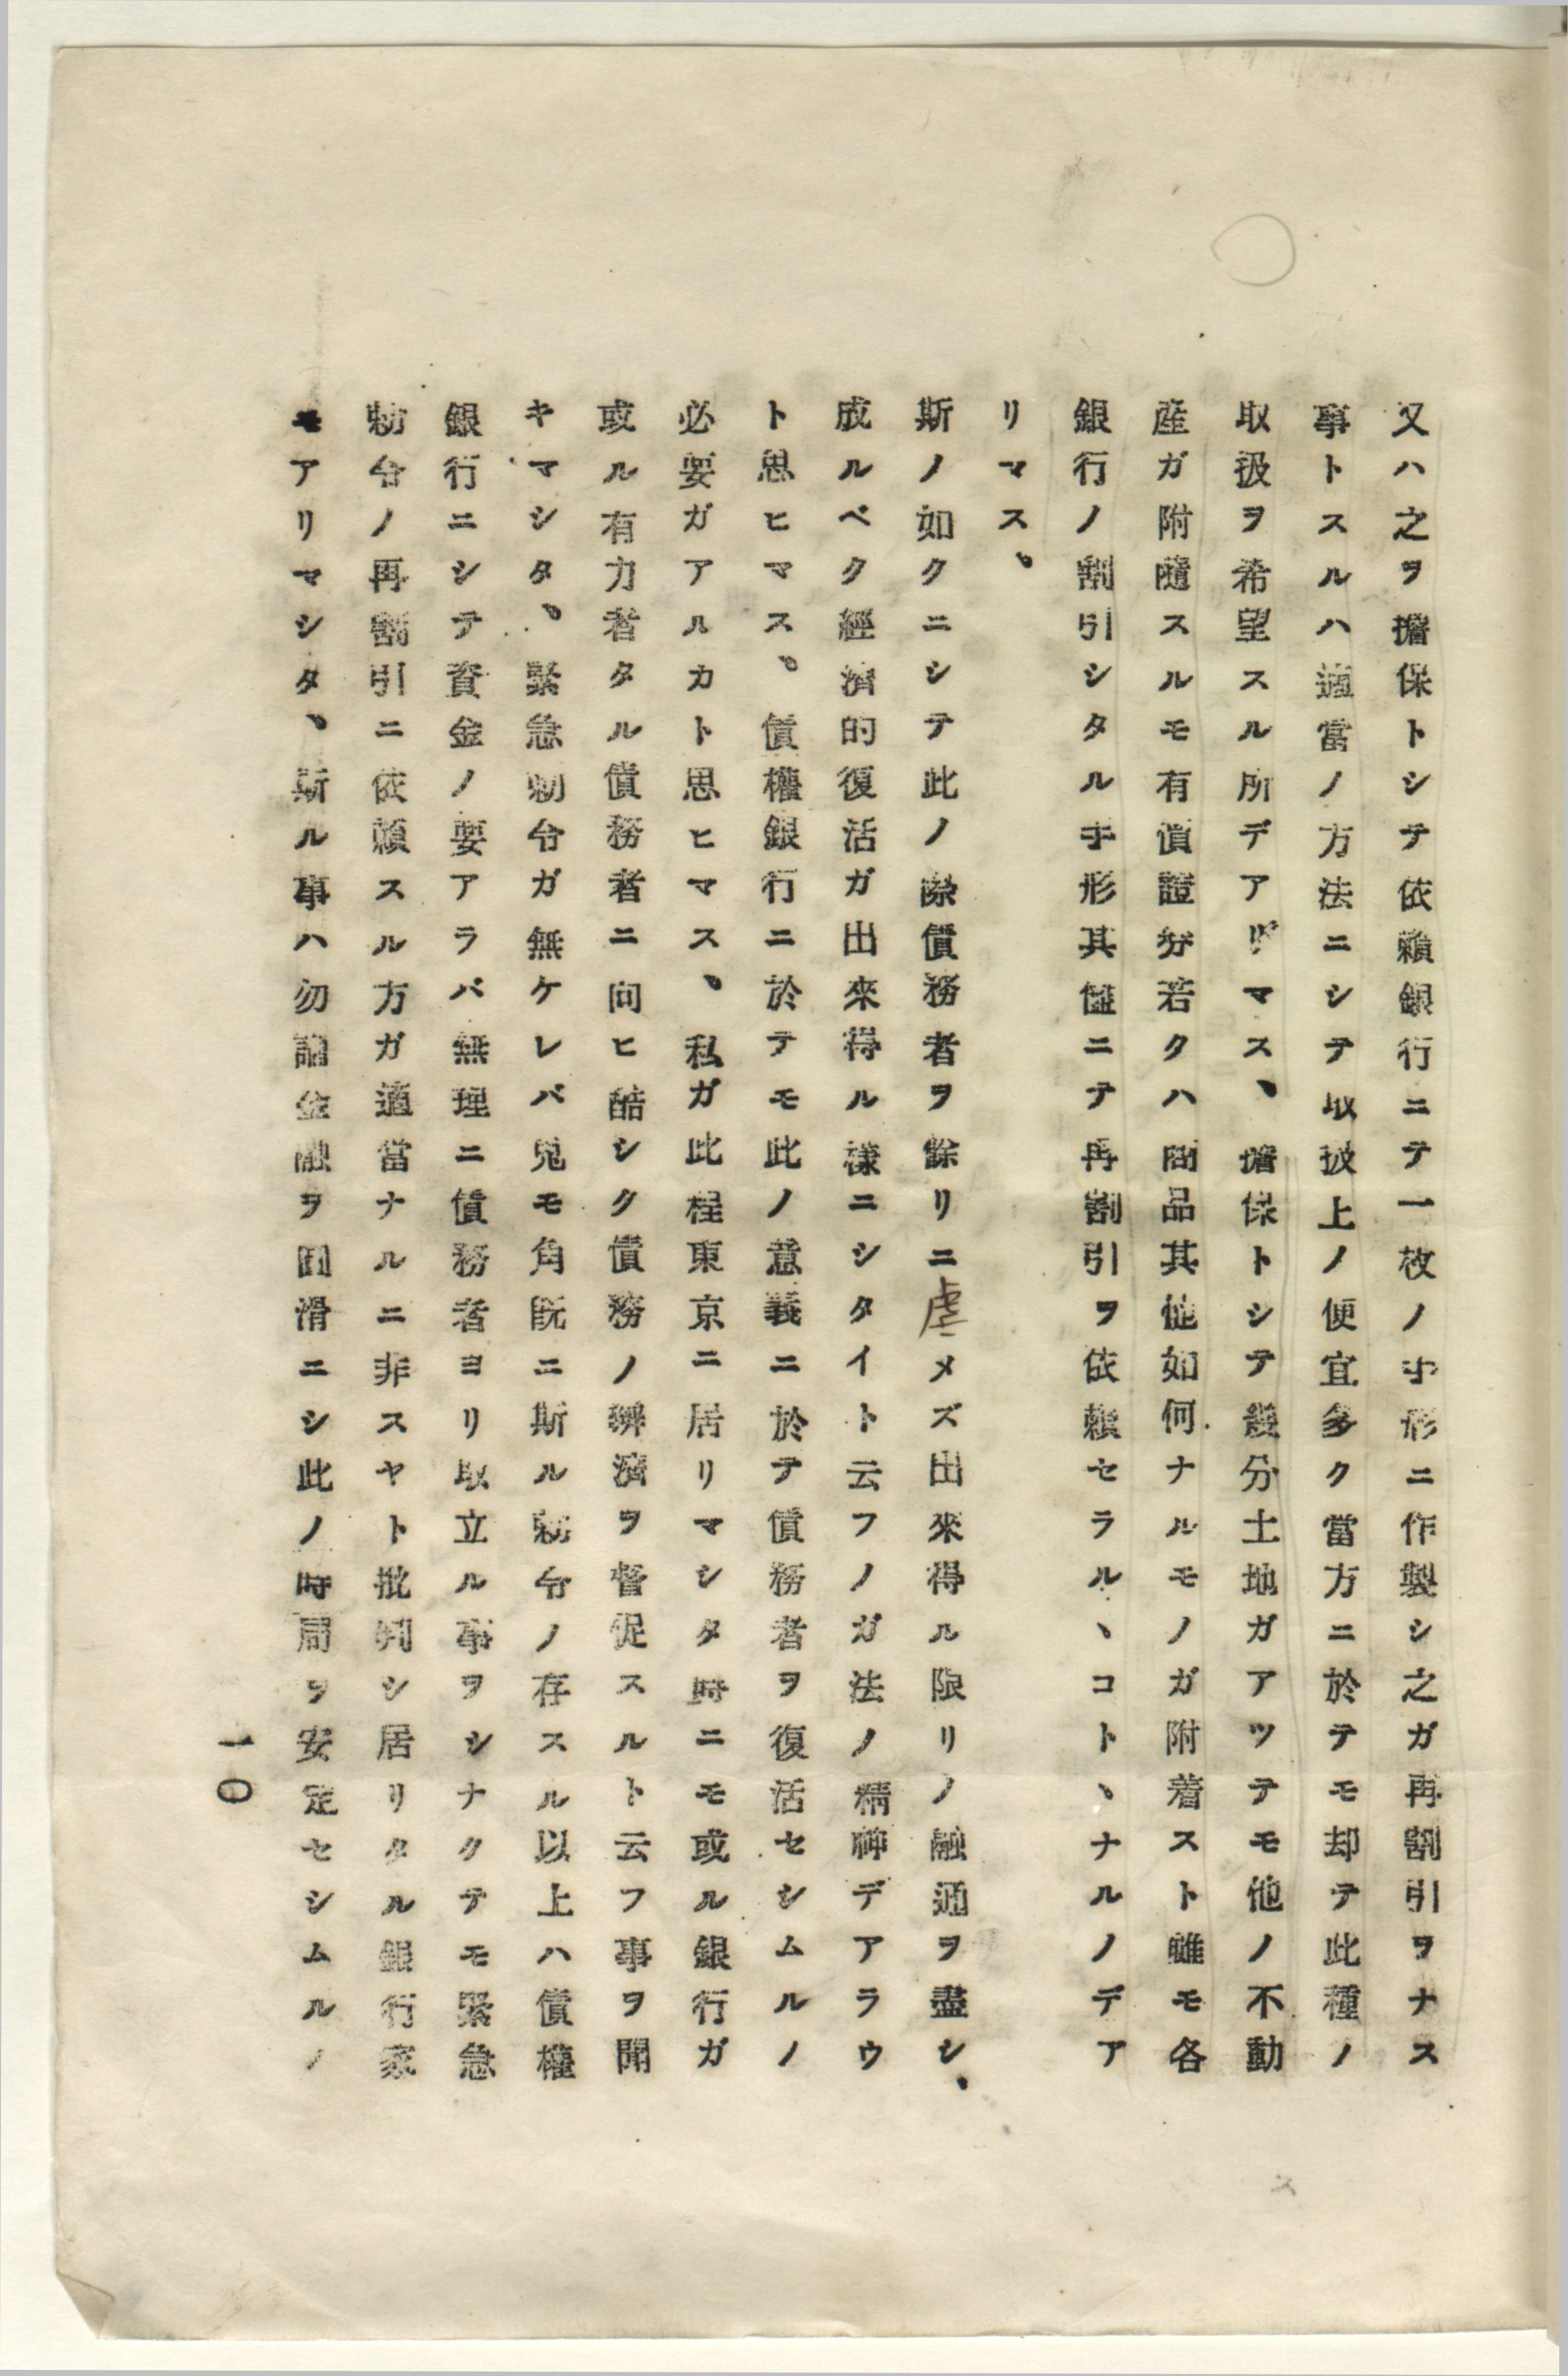 又ハ之ヲ擔保トシテ依賴銀行ニテ一枚ノ手形ニ作製シ之ガ再割引ヲナス
事トスルハ適當ノ方法ニシテ取扱上ノ便宜多ク當方ニ於テモ却テ此種ノ
取扱ヲ希望スル所デアリマス、擔保トシテ幾分土地ガアツテモ他ノ不動
産ガ附隨スルモ有價證券若クハ商品其他如何ナルモノガ附着スト雖モ各
銀行ノ割引シタル手形其儘ニテ再割引ヲ依賴セラルヽコトヽナルノデア
リマス、
斯ノ如クニシテ此ノ際債務者ヲ餘リニ虐メズ出來得ル限リノ融通ヲ盡シ、
成ルベク經濟的復活ガ出來得ル樣ニシタイト云フノガ法ノ精神デアラウ
ト思ヒマス、債權銀行ニ於テモ此ノ意義ニ於テ債務者ヲ復活セシムルノ
必要ガアルカト思ヒマス、私ガ此程東京ニ居リマシタ時ニモ或ル銀行ガ
或ル有力者タル債務者ニ向ヒ酷シク債務ノ辨濟ヲ督促スルト云フ事ヲ聞
キマシタ、緊急勅令ガ無ケレバ兎モ角既ニ斯ル勅令ノ存スル以上ハ債權
銀行ニシテ資金ノ要アラバ無理ニ債務者ヨリ取立ル事ヲシナクテモ緊急
勅令ノ再割引ニ依賴スル方ガ適當ナルニ非スヤト批判シ居リタル銀行家
モアリマシタ、斯ル事ハ勿論金融ヲ圓滑ニシ此ノ時局ヲ安定セシムルノ
一〇